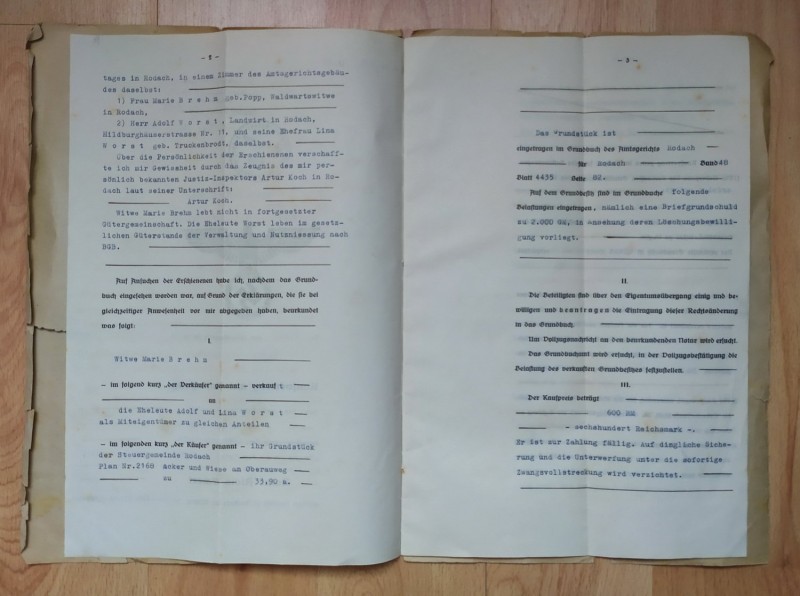 - 2 -
tages in Rodach, in einem Zimmer des Amtsgerichtsgebäu-
des daselbst:
1) Frau Marie B r e h m geb.Popp, Waldwartswitwe
in Rodach,
2) Herr Adolf W o r s t , Landwirt in Rodach,
Hildburghäuserstrasse Nr. 11, und seine Ehefrau Lina
W o r s t geb. Truckenbrodt, daselbst.
Über die Persönlichkeit der Erschienenen verschaff-
te ich mir Gewissheit durch das Zeugnis des mir per-
sönlich bekannten Justiz-Inspektors Artur Koch in Ro-
dach laut seiner Unterschrift:
Artur Koch.
Witwe Marie Brehm lebt nicht in fortgesetzter
Gütergemeinschaft. Die Eheleute Worst leben im gesetz-
lichen Güterstande der Verwaltung und Nutzniessung nach
BGB.
Auf Ansuchen der Erschienenen habe ich, nachdem das Grund-
buch eingesehen worden war, auf Grund der Erklärungen, die sie bei
gleichzeitiger Anwesenheit vor mir abgegeben haben, beurkundet
was folgt:
I.
Witwe Marie B r e h m
— im folgend kurz „der Verkäufer" genannt — verkauf t
an
die Eheleute Adolf und Lina W o r s t
als Miteigentümer zu gleichen Anteilen
— im folgenden kurz „der Käufer" genannt — ihr Grundstück
der Steuergemeinde Rodach
Plan Nr.2168 Acker und Wiese am Oberauweg
zu 33,90 a.
- 3 -
Das Grundstück ist
eingetragen im Grundbuch des Amtsgerichts Rodach
für Rodach Band 48
Blatt 4435 Seite 82.
Auf dem Grundbesitz sind im Grundbuche folgende
Belastungen eingetragen, nämlich eine Briefgrundschuld
zu 2.000 GM, in Ansehung deren Löschungsbewilli-
gung vorliegt.
II.
Die Beteiligten sind über den Eigentumsübergang einig und be-
willigen und beantragen die Eintragung dieser Rechtsänderung
in das Grundbuch.
Um Vollzugsnachricht an den beurkundenden Notar wird ersucht.
Das Grundbuchamt wird ersucht, in der Vollzugsbestätigung die
Belastung des verkauften Grundbesitzes festzustellen.
III.
Der Kaufpreis beträgt
600 RM
- sechshundert Reichsmark -.
Er ist zur Zahlung fällig. Auf dingliche Siche-
rung und die Unterwerfung unter die sofortige
Zwangsvollstreckung wird verzichtet.